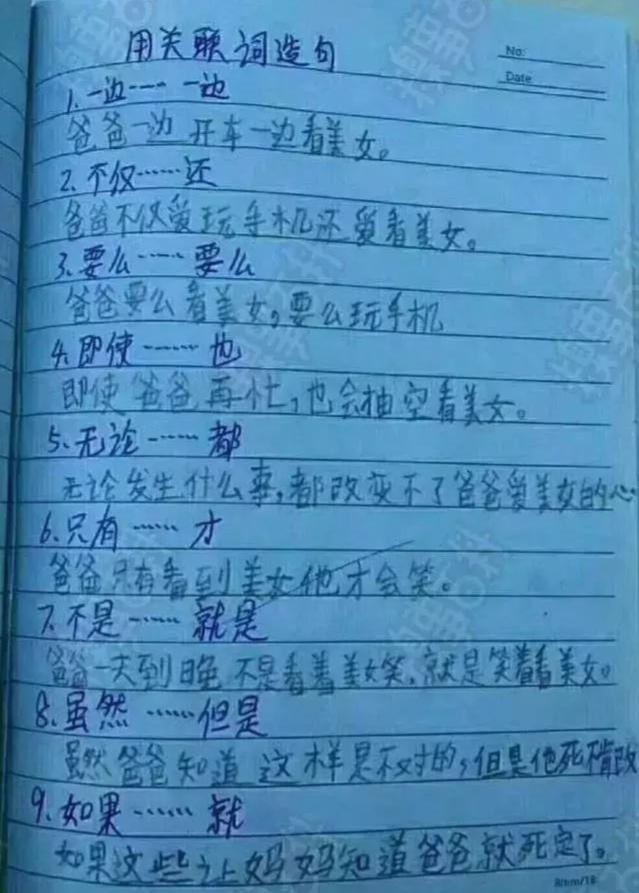 用关联词造句
No:
Date
1.一边……一边
爸爸一边开车一边看美女。
2.不仅……还
爸爸不仅爱玩手机还爱看美女。
3.要么……要么
爸爸要么看美女,要么玩手机
4.即使……也
即使爸爸再忙,也会抽空看美女。
5.无论……都
无论发生什么事,都改变不了爸爸爱美女的心
6.只有……才
爸爸只有看到美女他才会笑。
7.不是……就是
爸爸一天到晚不是看着美女笑,就是笑着看美女。
8.虽然……但是
虽然爸爸知道这样是不对的,但是他死惰改
9.如果……就
如果这些让妈妈知道爸爸就死定了。
8mm/18